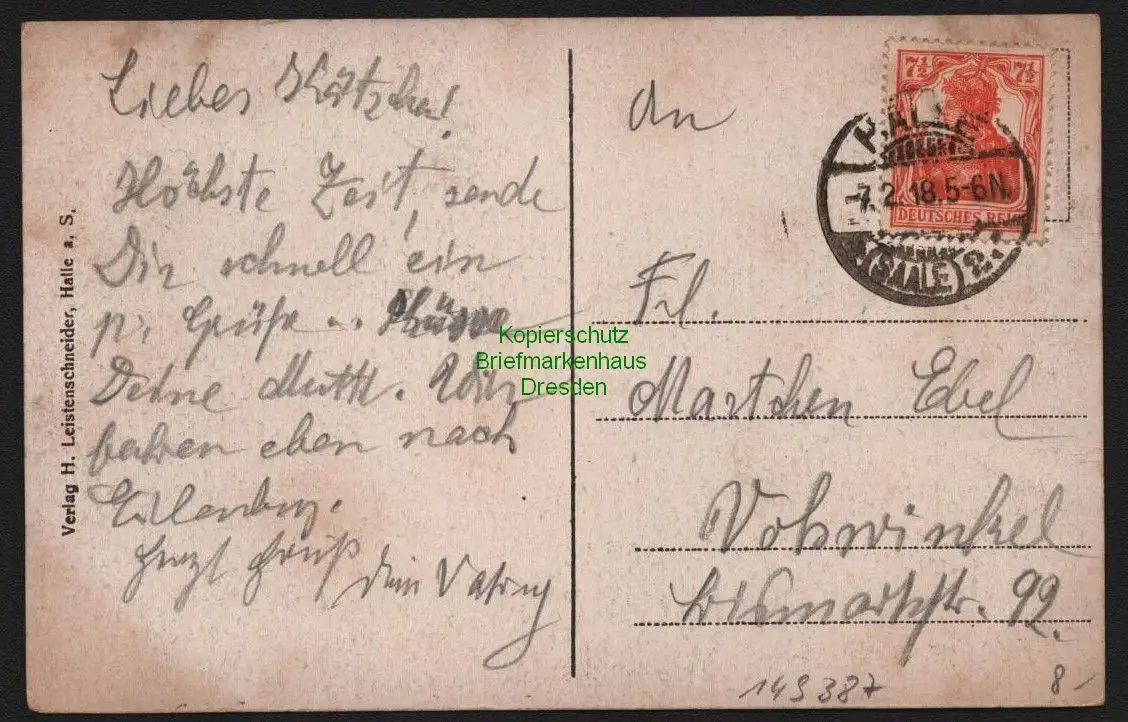 Liebes Kätzchen!
Höchste Zeit, sende
Dir schnell ein
p. Grüße
Deine Mutti. Wir
fahren eben nach
Eilenburg.
Herzl Gruß
Dein
Verlag H. Leistenschneider, Halle a. S.
An
Frl.
Martchen Ebel
Vohwinkel
Bismarckstr. 99.
7½ 7½
DEUTSCHES REICH
HALLE
7.2.18.5-6N.
(SAALE) 2
Kopierschutz
Briefmarkenhaus
Dresden
149387
8-